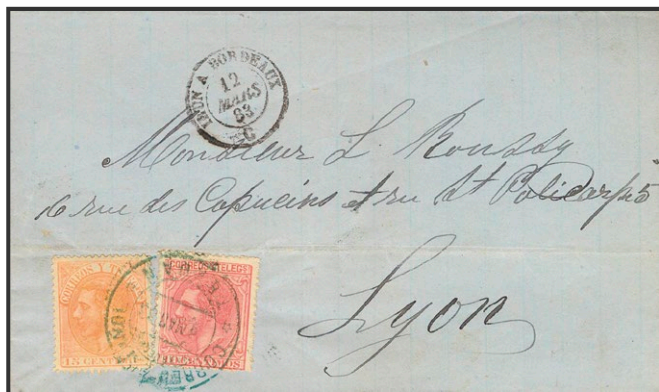 IRUN A BORDEAUX
12
MARS
83
C
Monsieur L. Roussy
6 rue des Capucins et ru St Policarpe 5
Lyon
CORREOS Y
15 CENT
CORREOS
TELEGS